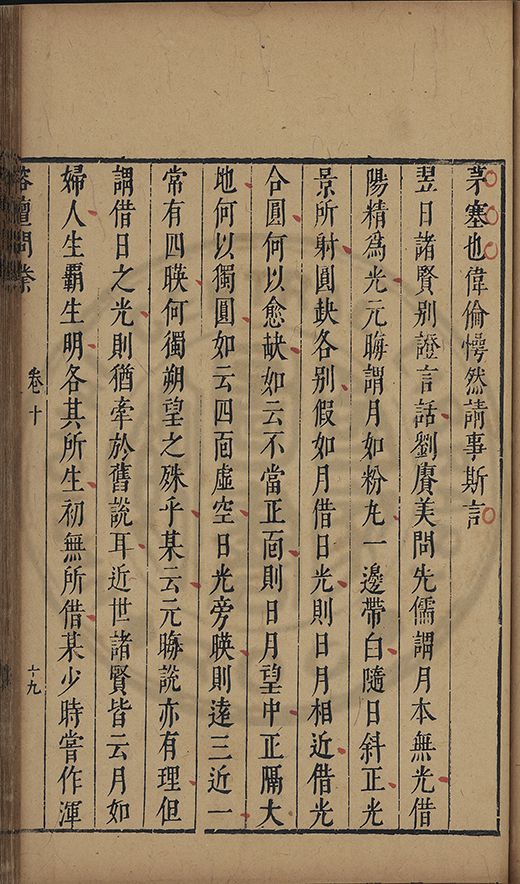 茅塞也偉倫愕然請事斯言
翌日諸賢別證言話劉賡美問先儒謂月本無光借
陽精為光元晦謂月如粉丸一邊帶白隨日斜正光
景所射圓缺各別假如月借日光則日月相近借光
合圓何以愈缺如云不當正面則日月望中正隔大
地何以獨圓如云四面虛空日光旁暎則遠三近一
常有四暎何獨朔望之殊乎某云元晦說亦有理但
謂借日之光則猶牽於舊說耳近世諸賢皆云月如
婦人生覇生明各其所生初無所借某少時嘗作渾
榕壇問業
卷十
十九